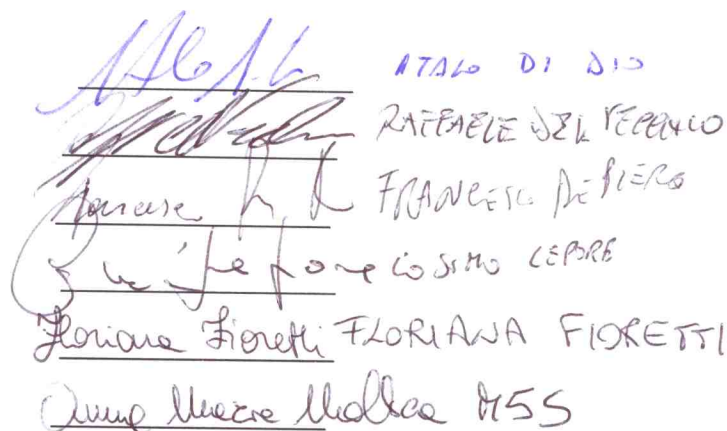 ITALO DI DIO
RAFFAELE DEL VECCHIO
FRANCESCO DE PIERO
COSIMO LEPORE
Floriana Fioretti FLORIANA FIORETTI
Anna Maria Mollica M5S